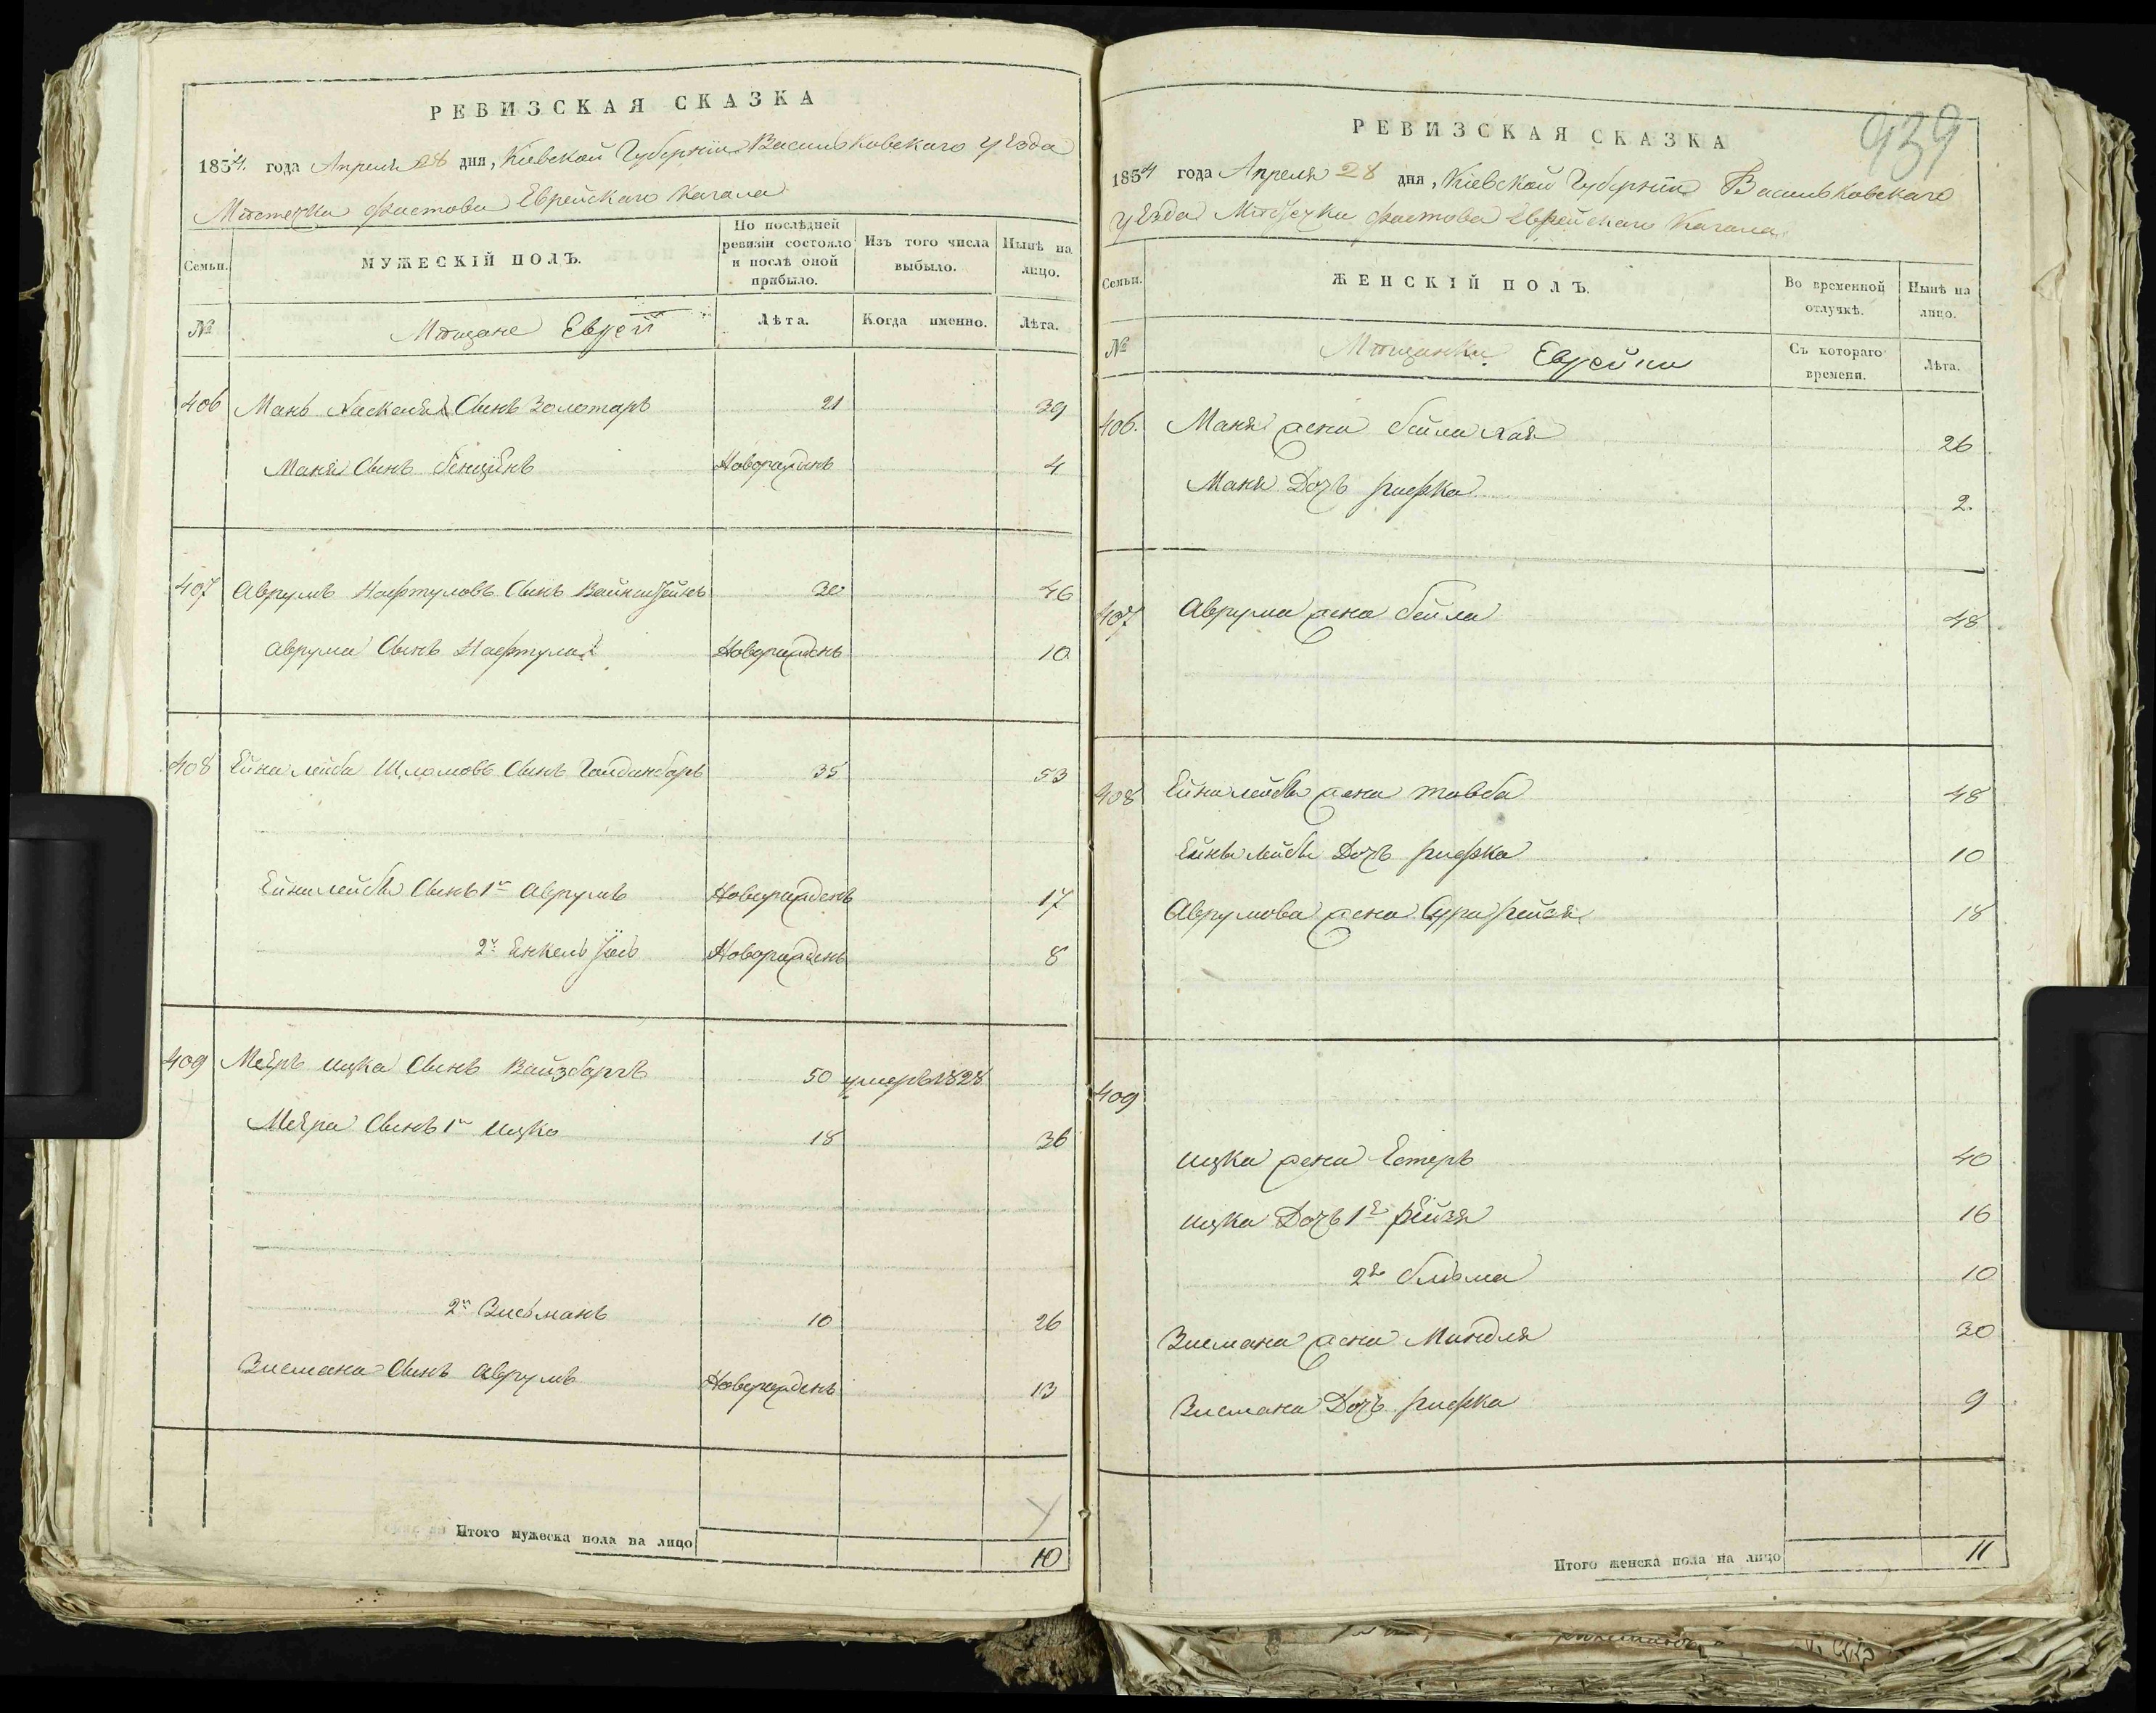 РЕВИЗСКАЯ СКАЗКА
1854. года Апреля 28 дня, Кіевской Губерніи Васильковскаго уѣзда
Мѣстечка Фастова Еврейскаго Кагала
Семьи.
МУЖЕСКІЙ ПОЛЪ.
По послѣдней ревизіи состояло и послѣ оной прибыло.
Изъ того числа выбыло.
Нынѣ на лицо.
№
Мѣщане Евреи
Лѣта.
Когда именно.
Лѣта.
406 Мань Хаскеля Сынъ Золотарь 21 39
Маня Сынъ Бенціёнъ Новорожденъ 4
407 Аврумъ Нафтуловъ Сынъ Вайнштейнъ 30 46
Аврума Сынъ Нафтула Новорожденъ 10
408 Ейна Лейба Шломовъ Сынъ Голданбаръ 35 53
Ейни Лейбы Сынъ 1й Аврумъ Новорожденъ 17
2й Енкель Новорожденъ 8
409 Меѣръ Ицка Сынъ Вайзбаргъ 50 умеръ 1828
Меѣра Сынъ 1й Ицко 18 36
2й Зисьманъ 10 26
Зисмана Сынъ Аврумъ Новорожденъ 13
Итого мужеска пола на лицо
10
939
РЕВИЗСКАЯ СКАЗКА
1854 года Апреля 28 дня, Кіевской Губерніи Васильковскаго
уѣзда Мѣстечки Фастова Еврейскаго Кагала
Семьи.
ЖЕНСКІЙ ПОЛЪ.
Во временной отлучкѣ.
Нынѣ на лицо.
№
Мѣщанки Еврейки
Съ котораго времени.
Лѣта.
406. Маня жена Бейла Хая 26
Маня Дочь Рифка 2.
407 Аврума жена Бейла 48
408 Ейна Лейбы жена Товба 48
Ейны Лейбы Дочь Рифка 10
Аврумова жена Сура Рейся 18
409
Ицка жена Естеръ 40
Ицка Дочь 1я Рейзя 16
2я Блюма 10
Зисмана жена Миндля 30
Зисмана Дочь Рифка 9
Итого женска пола на лицо
11